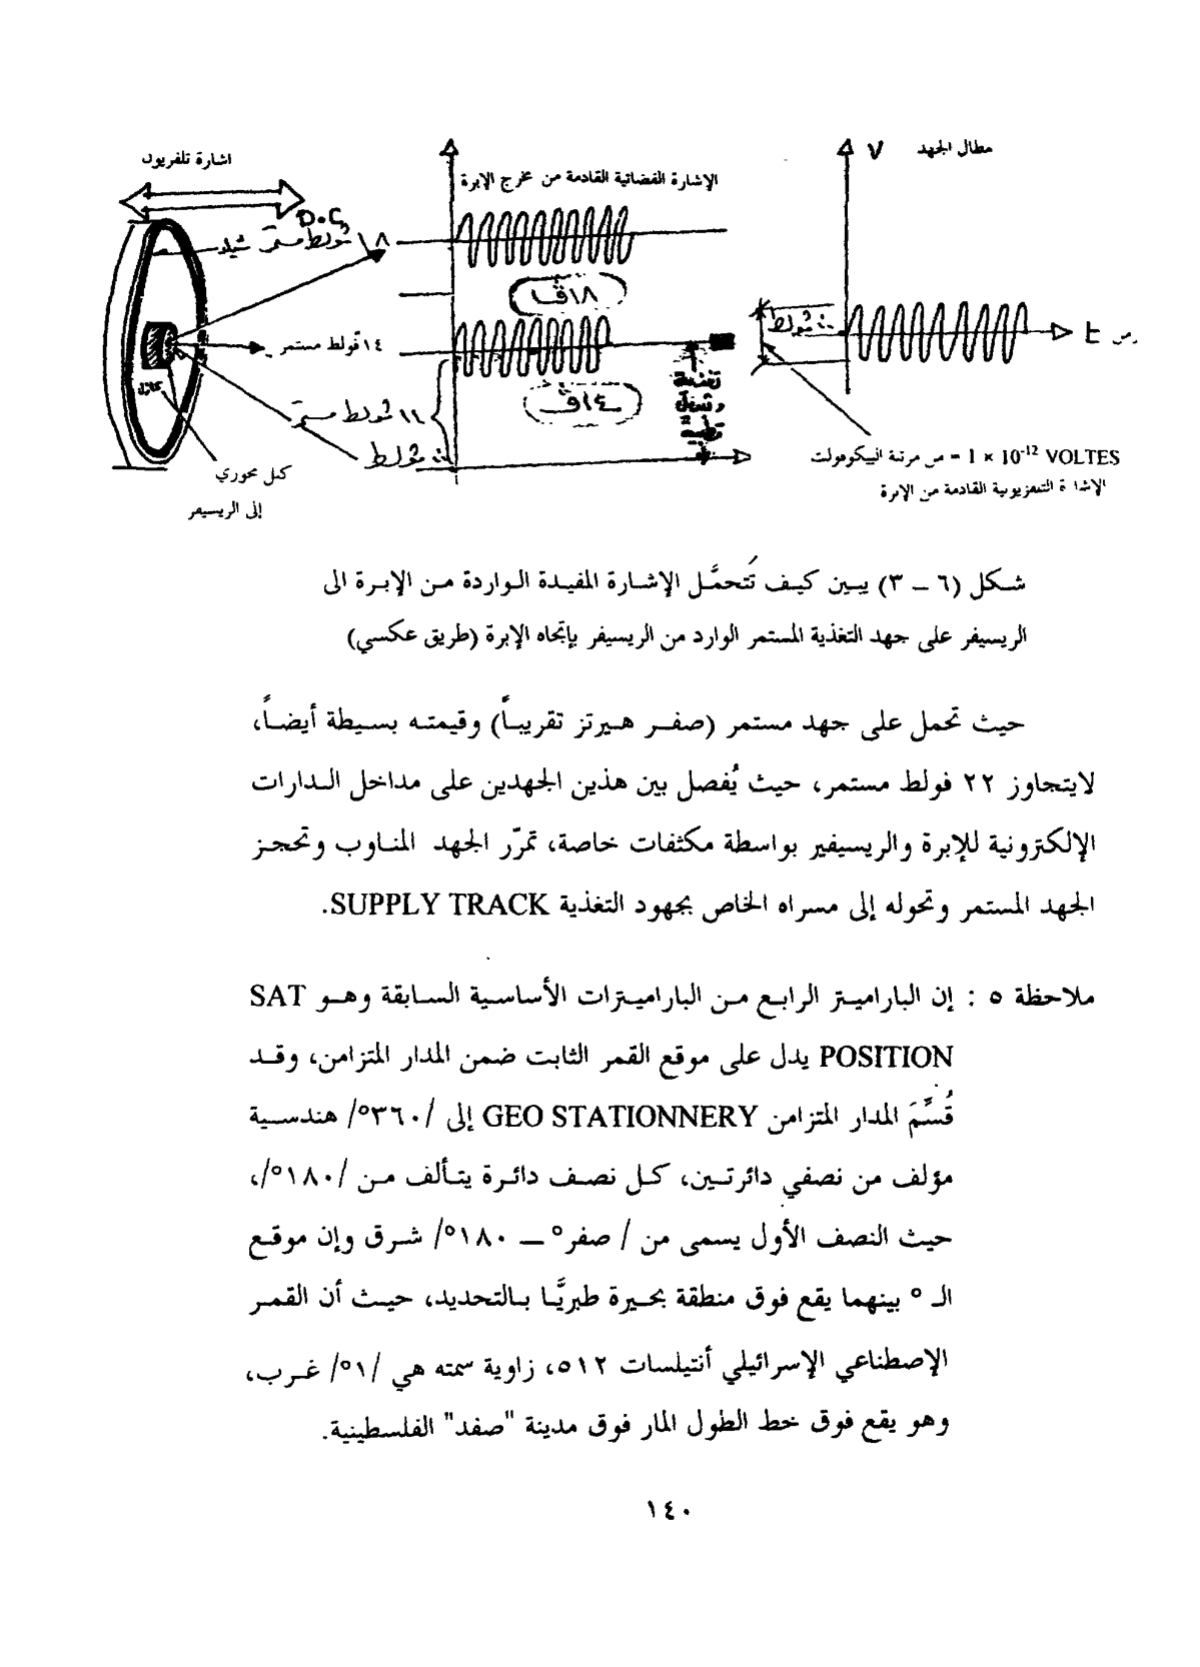 مطال الجهد
V
اشارة تلفزيون
الإشارة الفضائية القادمة من مخرج الإبرة
D.C
١٨ ڤولط مستمرّ
شيلد
١٨ڤ
١٤ ڤولط مستمر
ڤولط
t
زمن
١٤ڤ
تغذية
١١ ڤولط مستمرّ
ڤولط
كبل محوري
إلى الريسيفر
من مرتبة البيكوفولت = 1 × 10-12 VOLTES
الإشارة التلفزيونية القادمة من الإبرة
شكل (٦ – ٣) يبين كيف تُتحمَّل الإشارة المفيدة الواردة من الإبرة الى
الريسيفر على جهد التغذية المستمر الوارد من الريسيفر بإتجاه الإبرة (طريق عكسي)
حيث تحمل على جهد مستمر (صفر هيرتز تقريباً) وقيمته بسيطة أيضاً،
لايتجاوز ٢٢ فولط مستمر، حيث يُفصل بين هذين الجهدين على مداخل الدارات
الإلكترونية للإبرة والريسيفير بواسطة مكثفات خاصة، تمرّر الجهد المناوب وتحجز
الجهد المستمر وتحوله إلى مسراه الخاص بجهود التغذية SUPPLY TRACK.
ملاحظة ٥ : إن الباراميتر الرابع من الباراميترات الأساسية السابقة وهو SAT
POSITION يدل على موقع القمر الثابت ضمن المدار المتزامن، وقد
قُسِّمَ المدار المتزامن GEO STATIONNERY إلى /٣٦٠°/ هندسية
مؤلف من نصفي دائرتين، كل نصف دائرة يتألف من /١٨٠°/،
حيث النصف الأول يسمى من / صفر° – ١٨٠°/ شرق وإن موقع
الـ ° بينهما يقع فوق منطقة بحيرة طبريَّا بالتحديد، حيث أن القمر
الإصطناعي الإسرائيلي أنتيلسات ٥١٢، زاوية سمته هي /١°/ غرب،
وهو يقع فوق خط الطول المار فوق مدينة "صفد" الفلسطينية.
١٤٠